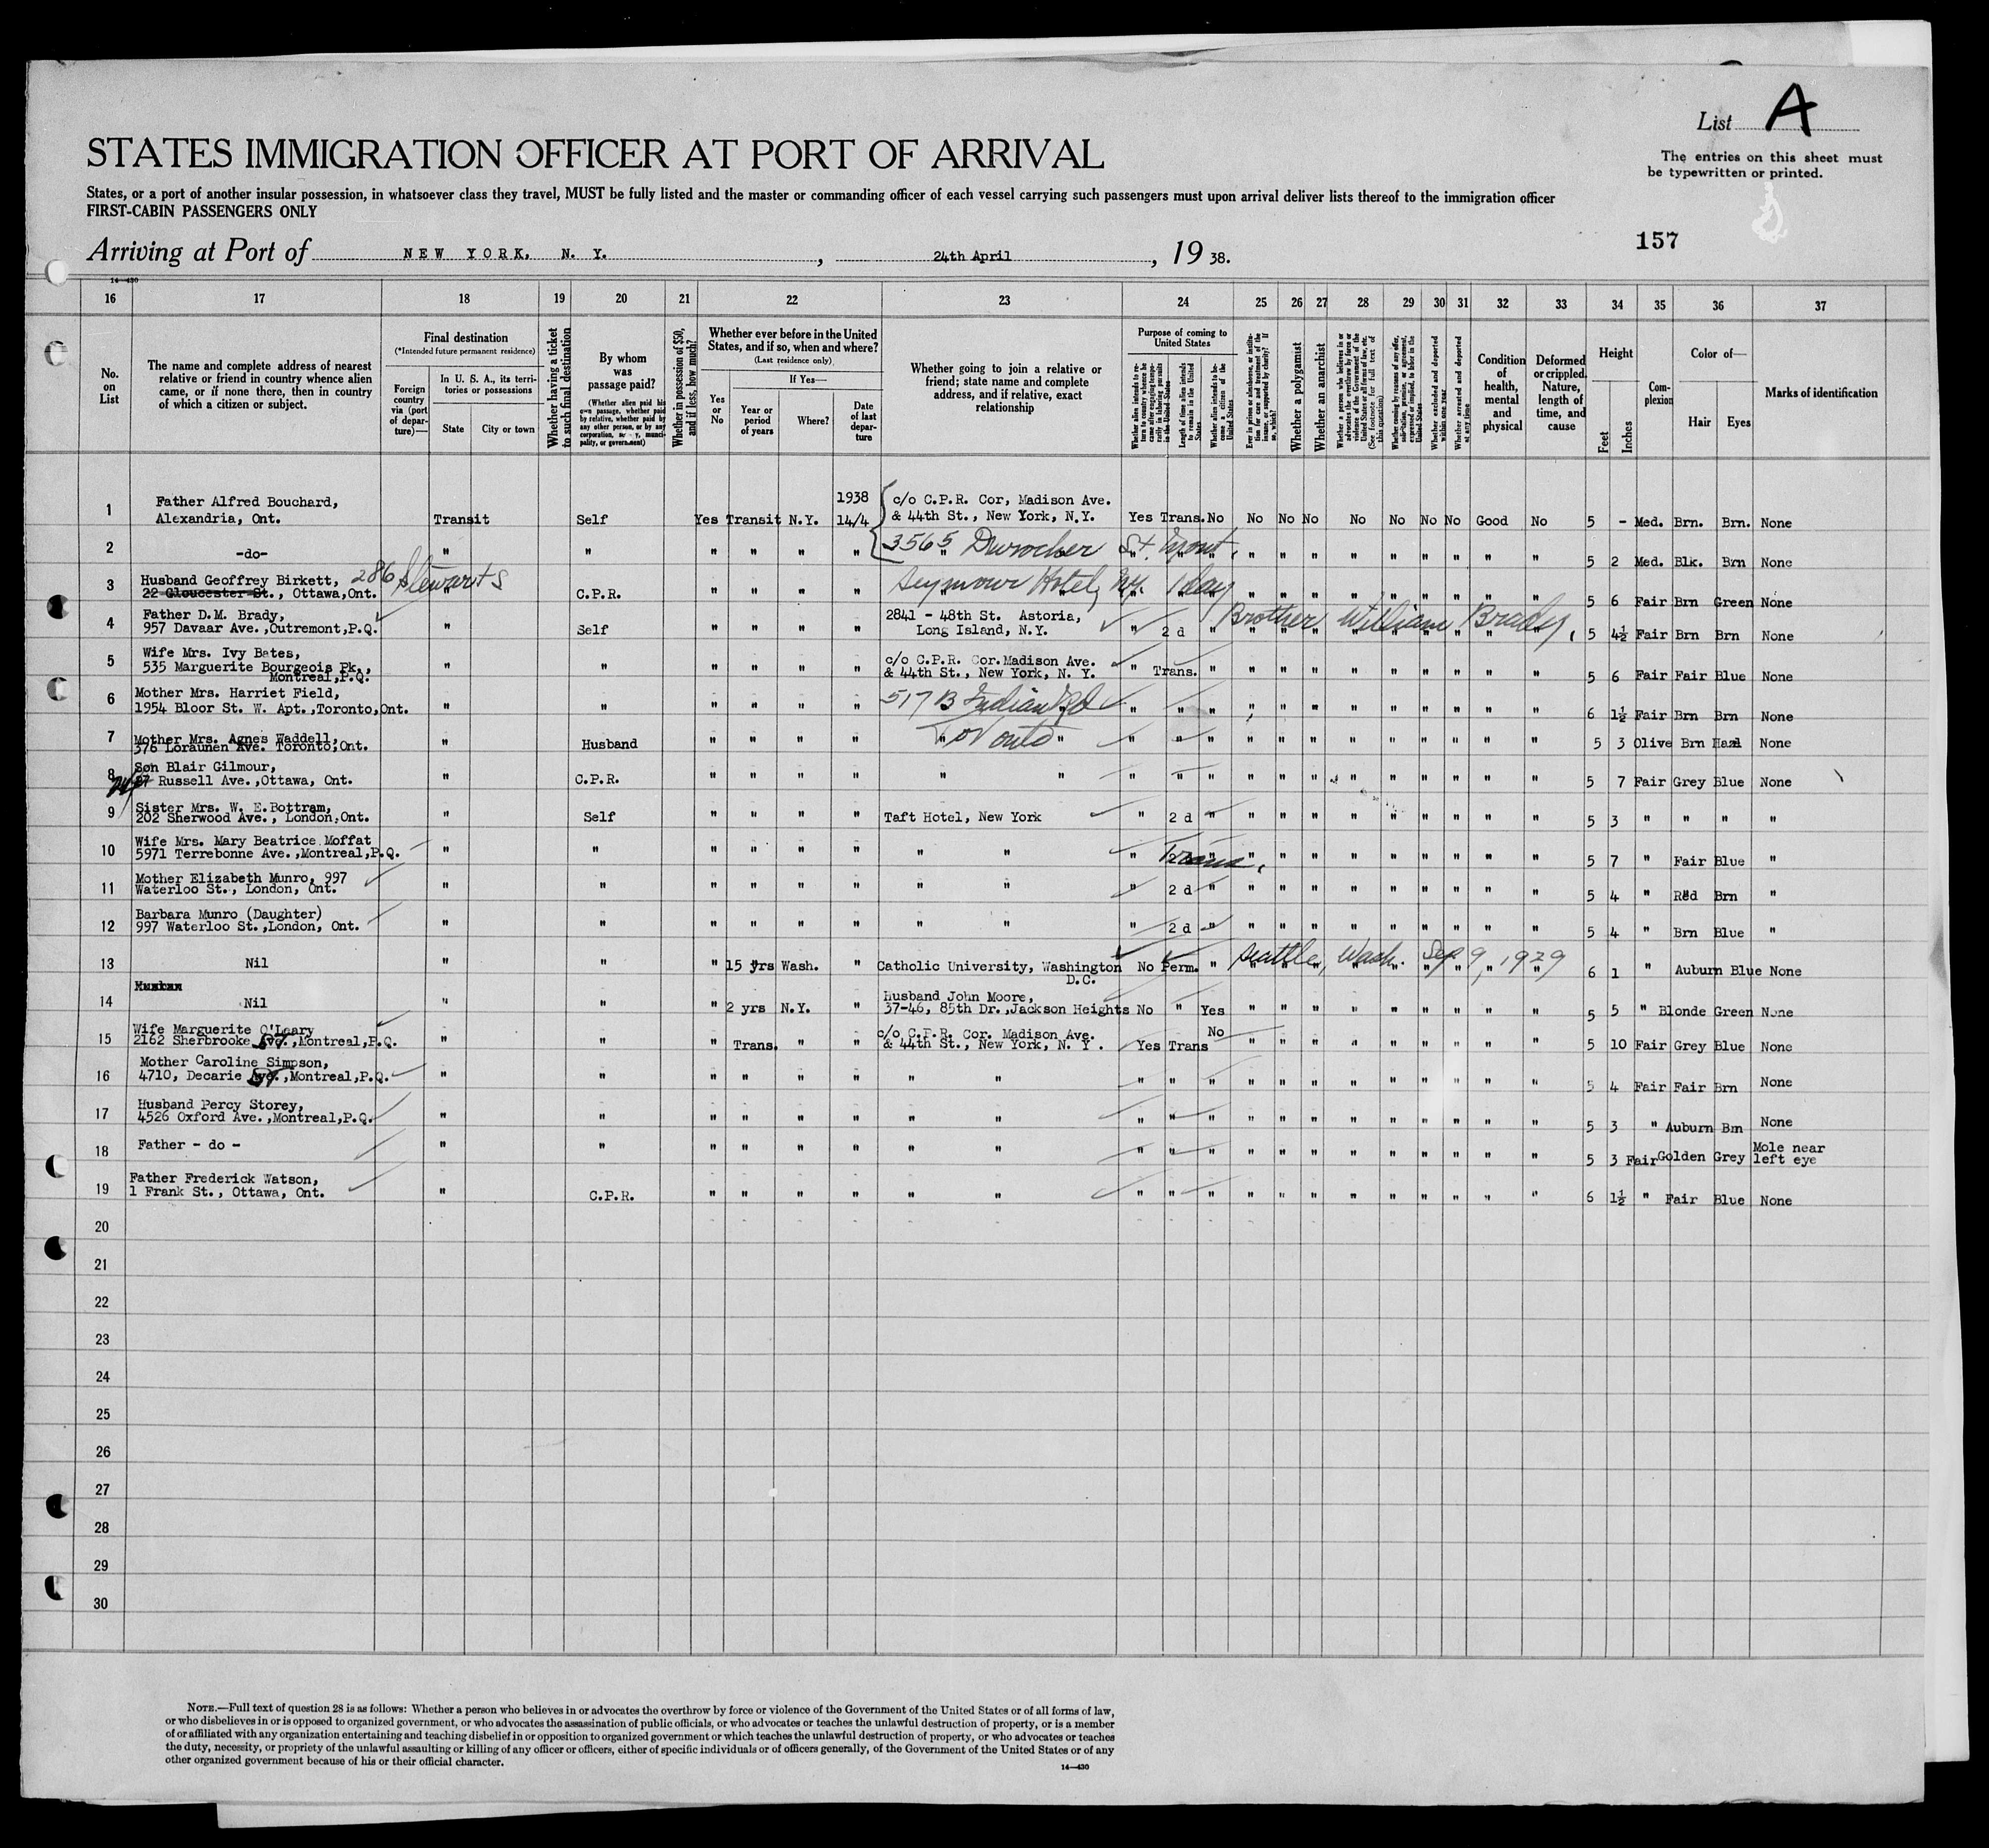 List A
The entries on this sheet must
be typewritten or printed.
STATES IMMIGRATION OFFICER AT PORT OF ARRIVAL
States, or a port of another insular possession, in whatsoever class they travel, MUST be fully listed and the master or commanding officer of each vessel carrying such passengers must upon arrival deliver lists thereof to the immigration officer
FIRST-CABIN PASSENGERS ONLY
157
Arriving at Port of NEW YORK, N. Y. , 24th April , 19 38.
14—430
16 17 18 19 20 21 22 23 24 25 26 27 28 29 30 31 32 33 34 35 36 37
No. on List
The name and complete address of nearest relative or friend in country whence alien came, or if none there, then in country of which a citizen or subject.
Final destination
(*Intended future permanent residence)
Foreign country via (port of departure)—
In U. S. A., its territories or possessions
State City or town
Whether having a ticket to such final destination
By whom was passage paid?
Whether in possession of $50, and if less, how much?
Whether ever before in the United States, and if so, when and where?
(Last residence only)
If Yes—
Yes or No
Year or period of years
Where?
Date of last departure
Whether going to join a relative or friend; state name and complete address, and if relative, exact relationship
Purpose of coming to United States
Whether a polygamist
Whether an anarchist
Condition of health, mental and physical
Deformed or crippled. Nature, length of time, and cause
Height
Feet Inches
Complexion
Color of—
Hair Eyes
Marks of identification
1 Father Alfred Bouchard, 1938 c/o C.P.R. Cor, Madison Ave.
Alexandria, Ont. Transit Self Yes Transit N.Y. 14/4 & 44th St., New York, N.Y. Yes Trans. No No No No No No No No Good No 5 - Med. Brn. Brn. None
2 -do- " " " " " " 3565 Durocher St. Mont. " " " " " " " " " 5 2 Med. Blk. Brn None
3 Husband Geoffrey Birkett, 286 Stewarts Seymour Hotel, NY. 1 day
22 Gloucester St., Ottawa,Ont. " C.P.R. " " " " " " " " " " " " " 5 6 Fair Brn Green None
4 Father D.M. Brady, 2841 - 48th St. Astoria, Brother William Brady,
957 Davaar Ave.,Outremont,P.Q. " Self " " " " Long Island, N.Y. " 2 d " " " " " " " " " " 5 4½ Fair Brn Brn None
5 Wife Mrs. Ivy Bates, c/o C.P.R. Cor.Madison Ave.
535 Marguerite Bourgeois Pk., " " " " " " & 44th St., New York, N. Y. " Trans. " " " " " " " " " " 5 6 Fair Fair Blue None
Montreal,P.Q.
6 Mother Mrs. Harriet Field, 517 B Indian Rd
1954 Bloor St. W. Apt.,Toronto,Ont. " " " " " " " " " " " " " " " " " " 6 1½ Fair Brn Brn None
7 Mother Mrs. Agnes Waddell, Toronto
376 Loraunen Ave. Toronto,Ont. " Husband " " " " " " " " " " " " " " " " " " 5 3 Olive Brn Hazl None
8 Son Blair Gilmour,
Russell Ave.,Ottawa, Ont. " C.P.R. " " " " " " " " " " " " " " " " " " 5 7 Fair Grey Blue None
9 Sister Mrs. W. E.Bottram,
202 Sherwood Ave., London,Ont. " Self " " " " Taft Hotel, New York " 2 d " " " " " " " " " " 5 3 " " " "
10 Wife Mrs. Mary Beatrice Moffat
5971 Terrebonne Ave.,Montreal,P.Q. " " " " " " " " " Trans. " " " " " " " " " 5 7 " Fair Blue "
11 Mother Elizabeth Munro, 997
Waterloo St., London, Ont. " " " " " " " " " 2 d " " " " " " " " " " 5 4 " Red Brn "
12 Barbara Munro (Daughter)
997 Waterloo St.,London, Ont. " " " " " " " " " 2 d " " " " " " " " " " 5 4 " Brn Blue "
13 Nil " " " 15 yrs Wash. " Catholic University, Washington D.C. No Perm. " Seattle, Wash. Sep 9, 1929 " " " " " " " " " 6 1 " Auburn Blue None
14 Nil " " " 2 yrs N.Y. " Husband John Moore,
37-46, 85th Dr.,Jackson Heights No " Yes " " " " " " " " " 5 5 " Blonde Green None
15 Wife Marguerite O'Leary c/o C.P.R. Cor. Madison Ave. No
2162 Sherbrooke St.,Montreal,P.Q. " " " Trans. " " & 44th St., New York, N. Y. Yes Trans " " " " " " " " " 5 10 Fair Grey Blue None
16 Mother Caroline Simpson,
4710, Decarie St.,Montreal,P.Q. " " " " " " " " " " " " " " " " " " " " " 5 4 Fair Fair Brn None
17 Husband Percy Storey,
4526 Oxford Ave.,Montreal,P.Q. " " " " " " " " " " " " " " " " " " " " " 5 3 " Auburn Brn None
18 Father - do - " " " " " " " " " " " " " " " " " " " " " 5 3 Fair Golden Grey Mole near left eye
19 Father Frederick Watson,
1 Frank St., Ottawa, Ont. " C.P.R. " " " " " " " " " " " " " " " " " " " 6 1½ " Fair Blue None
20
21
22
23
24
25
26
27
28
29
30
NOTE.—Full text of question 28 is as follows: Whether a person who believes in or advocates the overthrow by force or violence of the Government of the United States or of all forms of law,
or who disbelieves in or is opposed to organized government, or who advocates the assassination of public officials, or who advocates or teaches the unlawful destruction of property, or is a member
of or affiliated with any organization entertaining and teaching disbelief in or opposition to organized government or which teaches the unlawful destruction of property, or who advocates or teaches
the duty, necessity, or propriety of the unlawful assaulting or killing of any officer or officers, either of specific individuals or of officers generally, of the Government of the United States or of any
other organized government because of his or their official character.
14—430